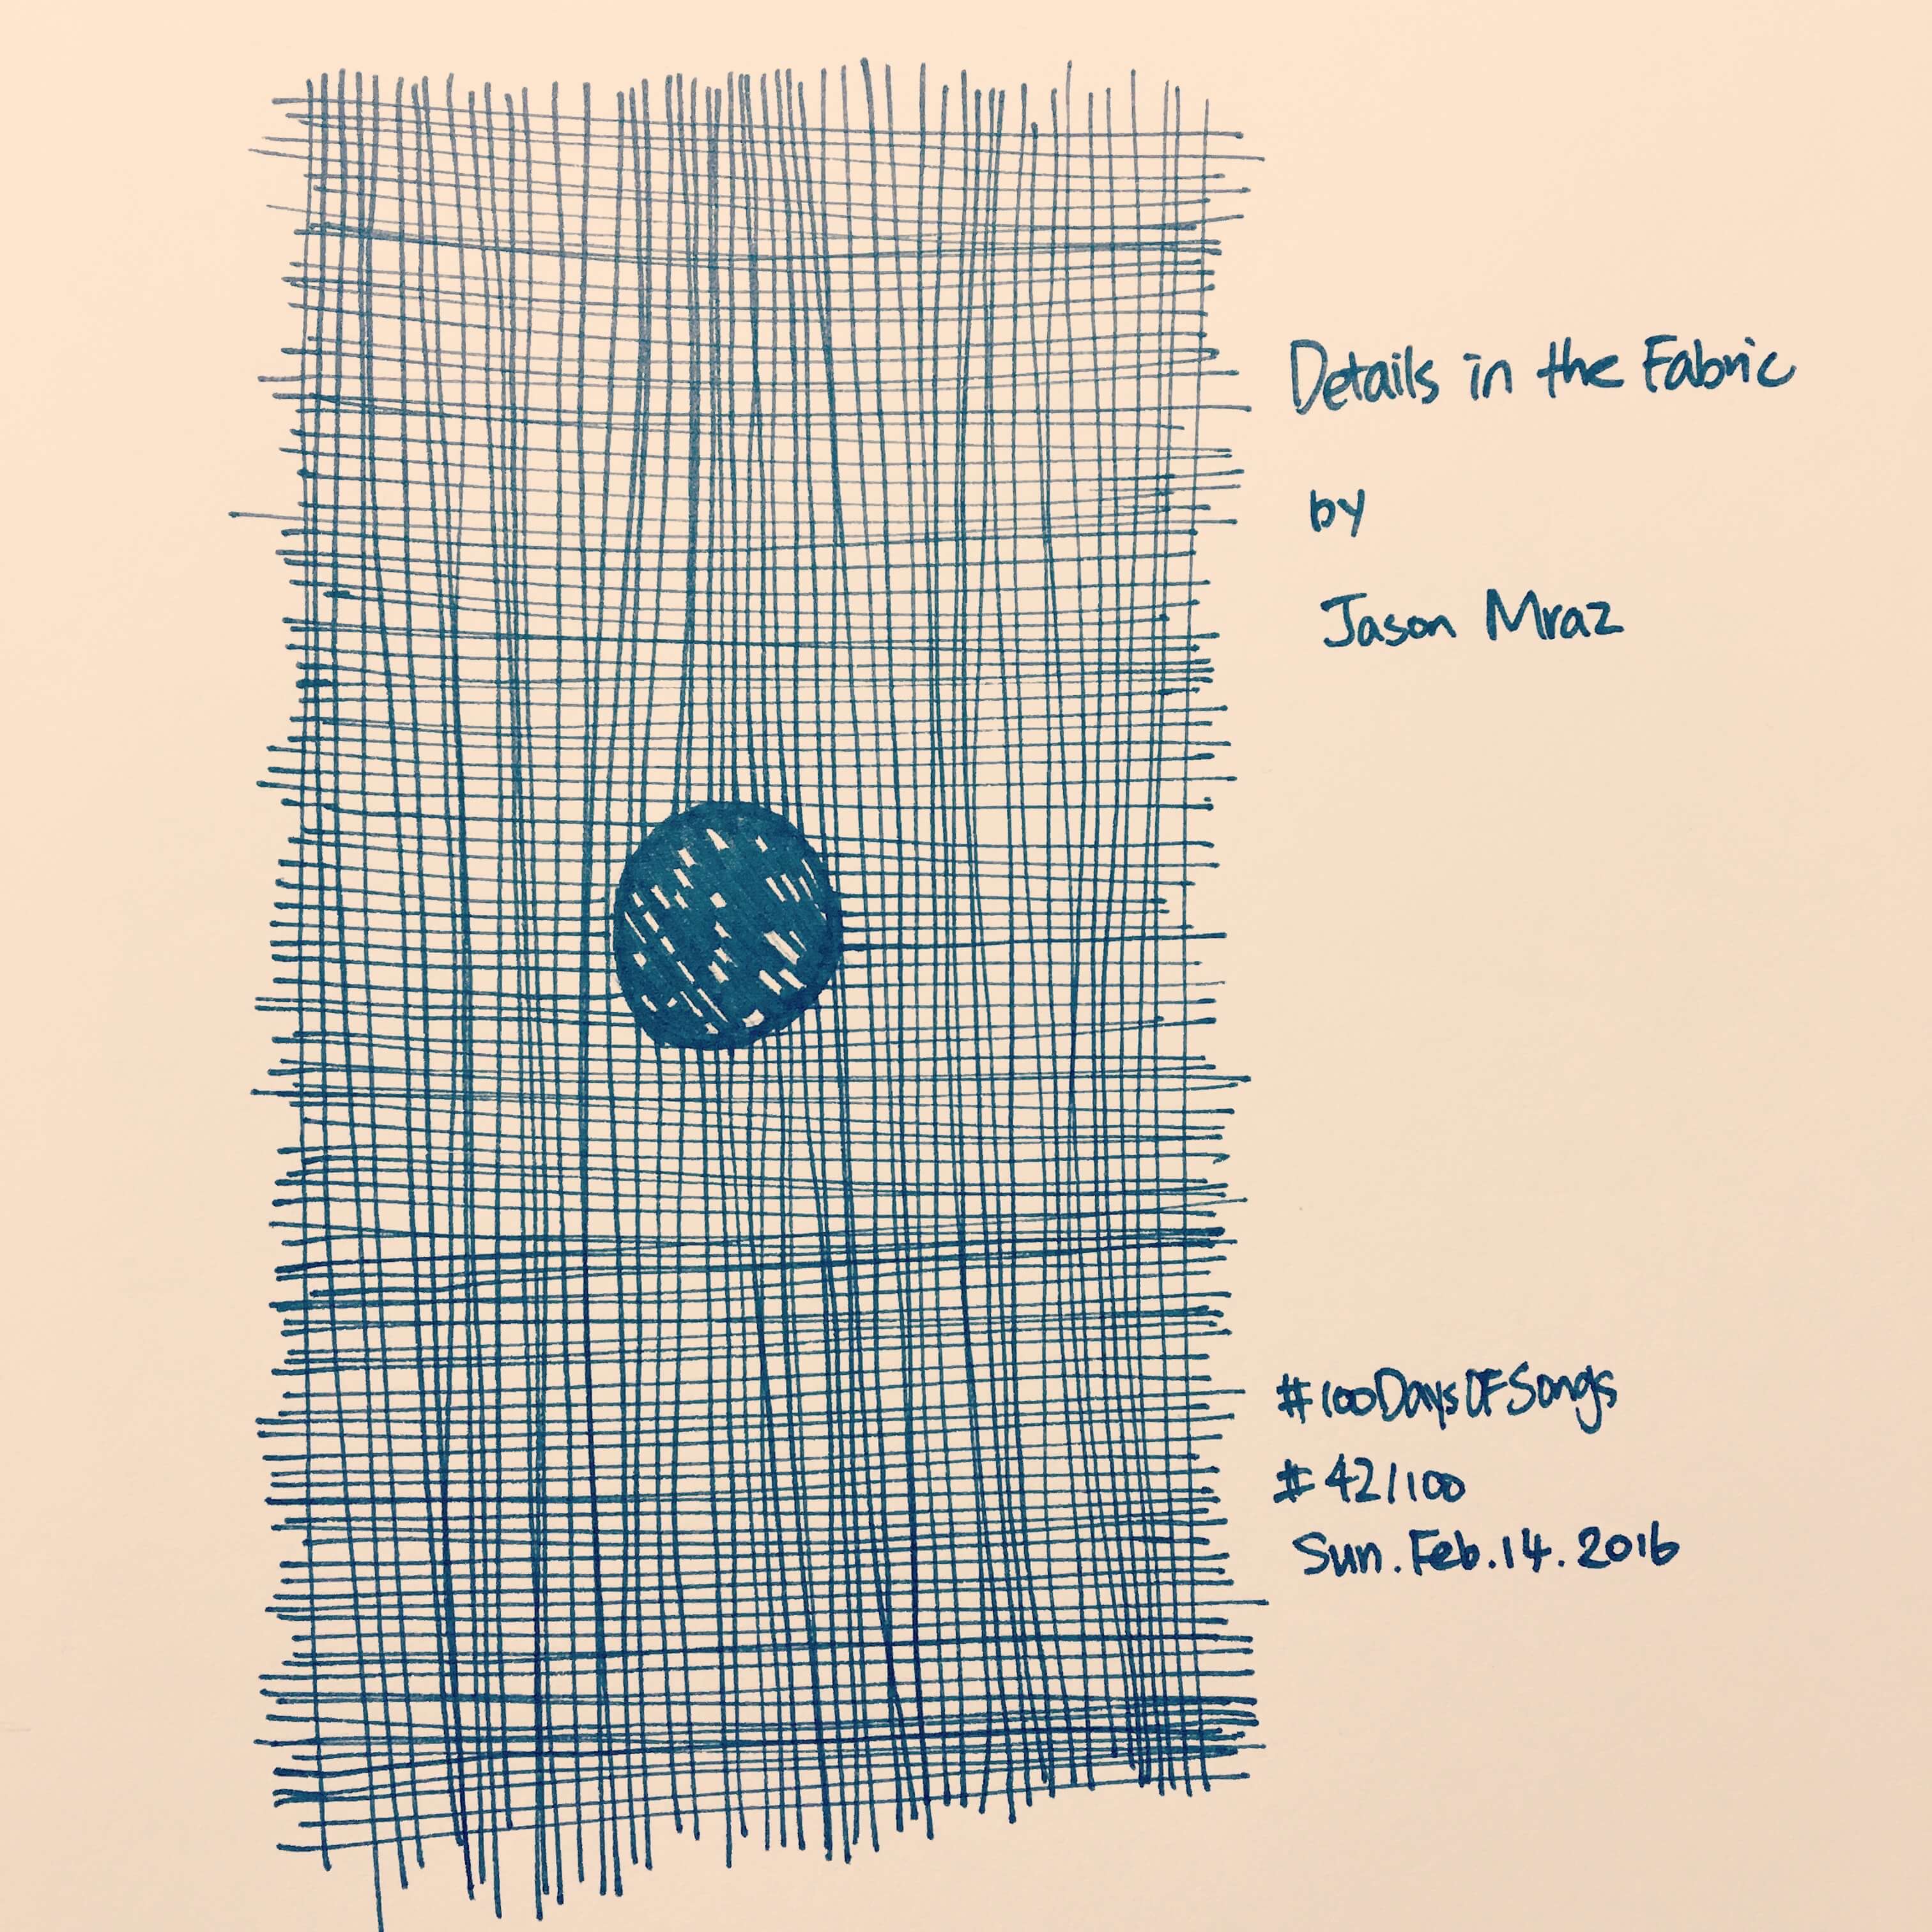 Details in the Fabric
by
Jason Mraz
#100DaysOfSongs
#42/100
Sun.Feb.14.2016